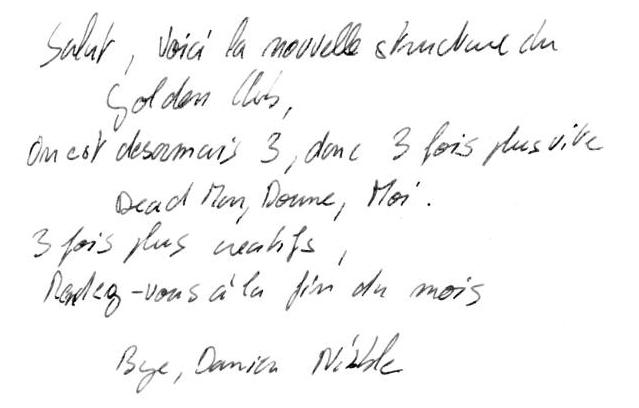 Salut, voici la nouvelle structure du
Golden Club,
On est desormais 3, donc 3 fois plus vite
Dead Man, Moi.
3 fois plus creatifs,
Rendez-vous à la fin du mois
Bye, Damien